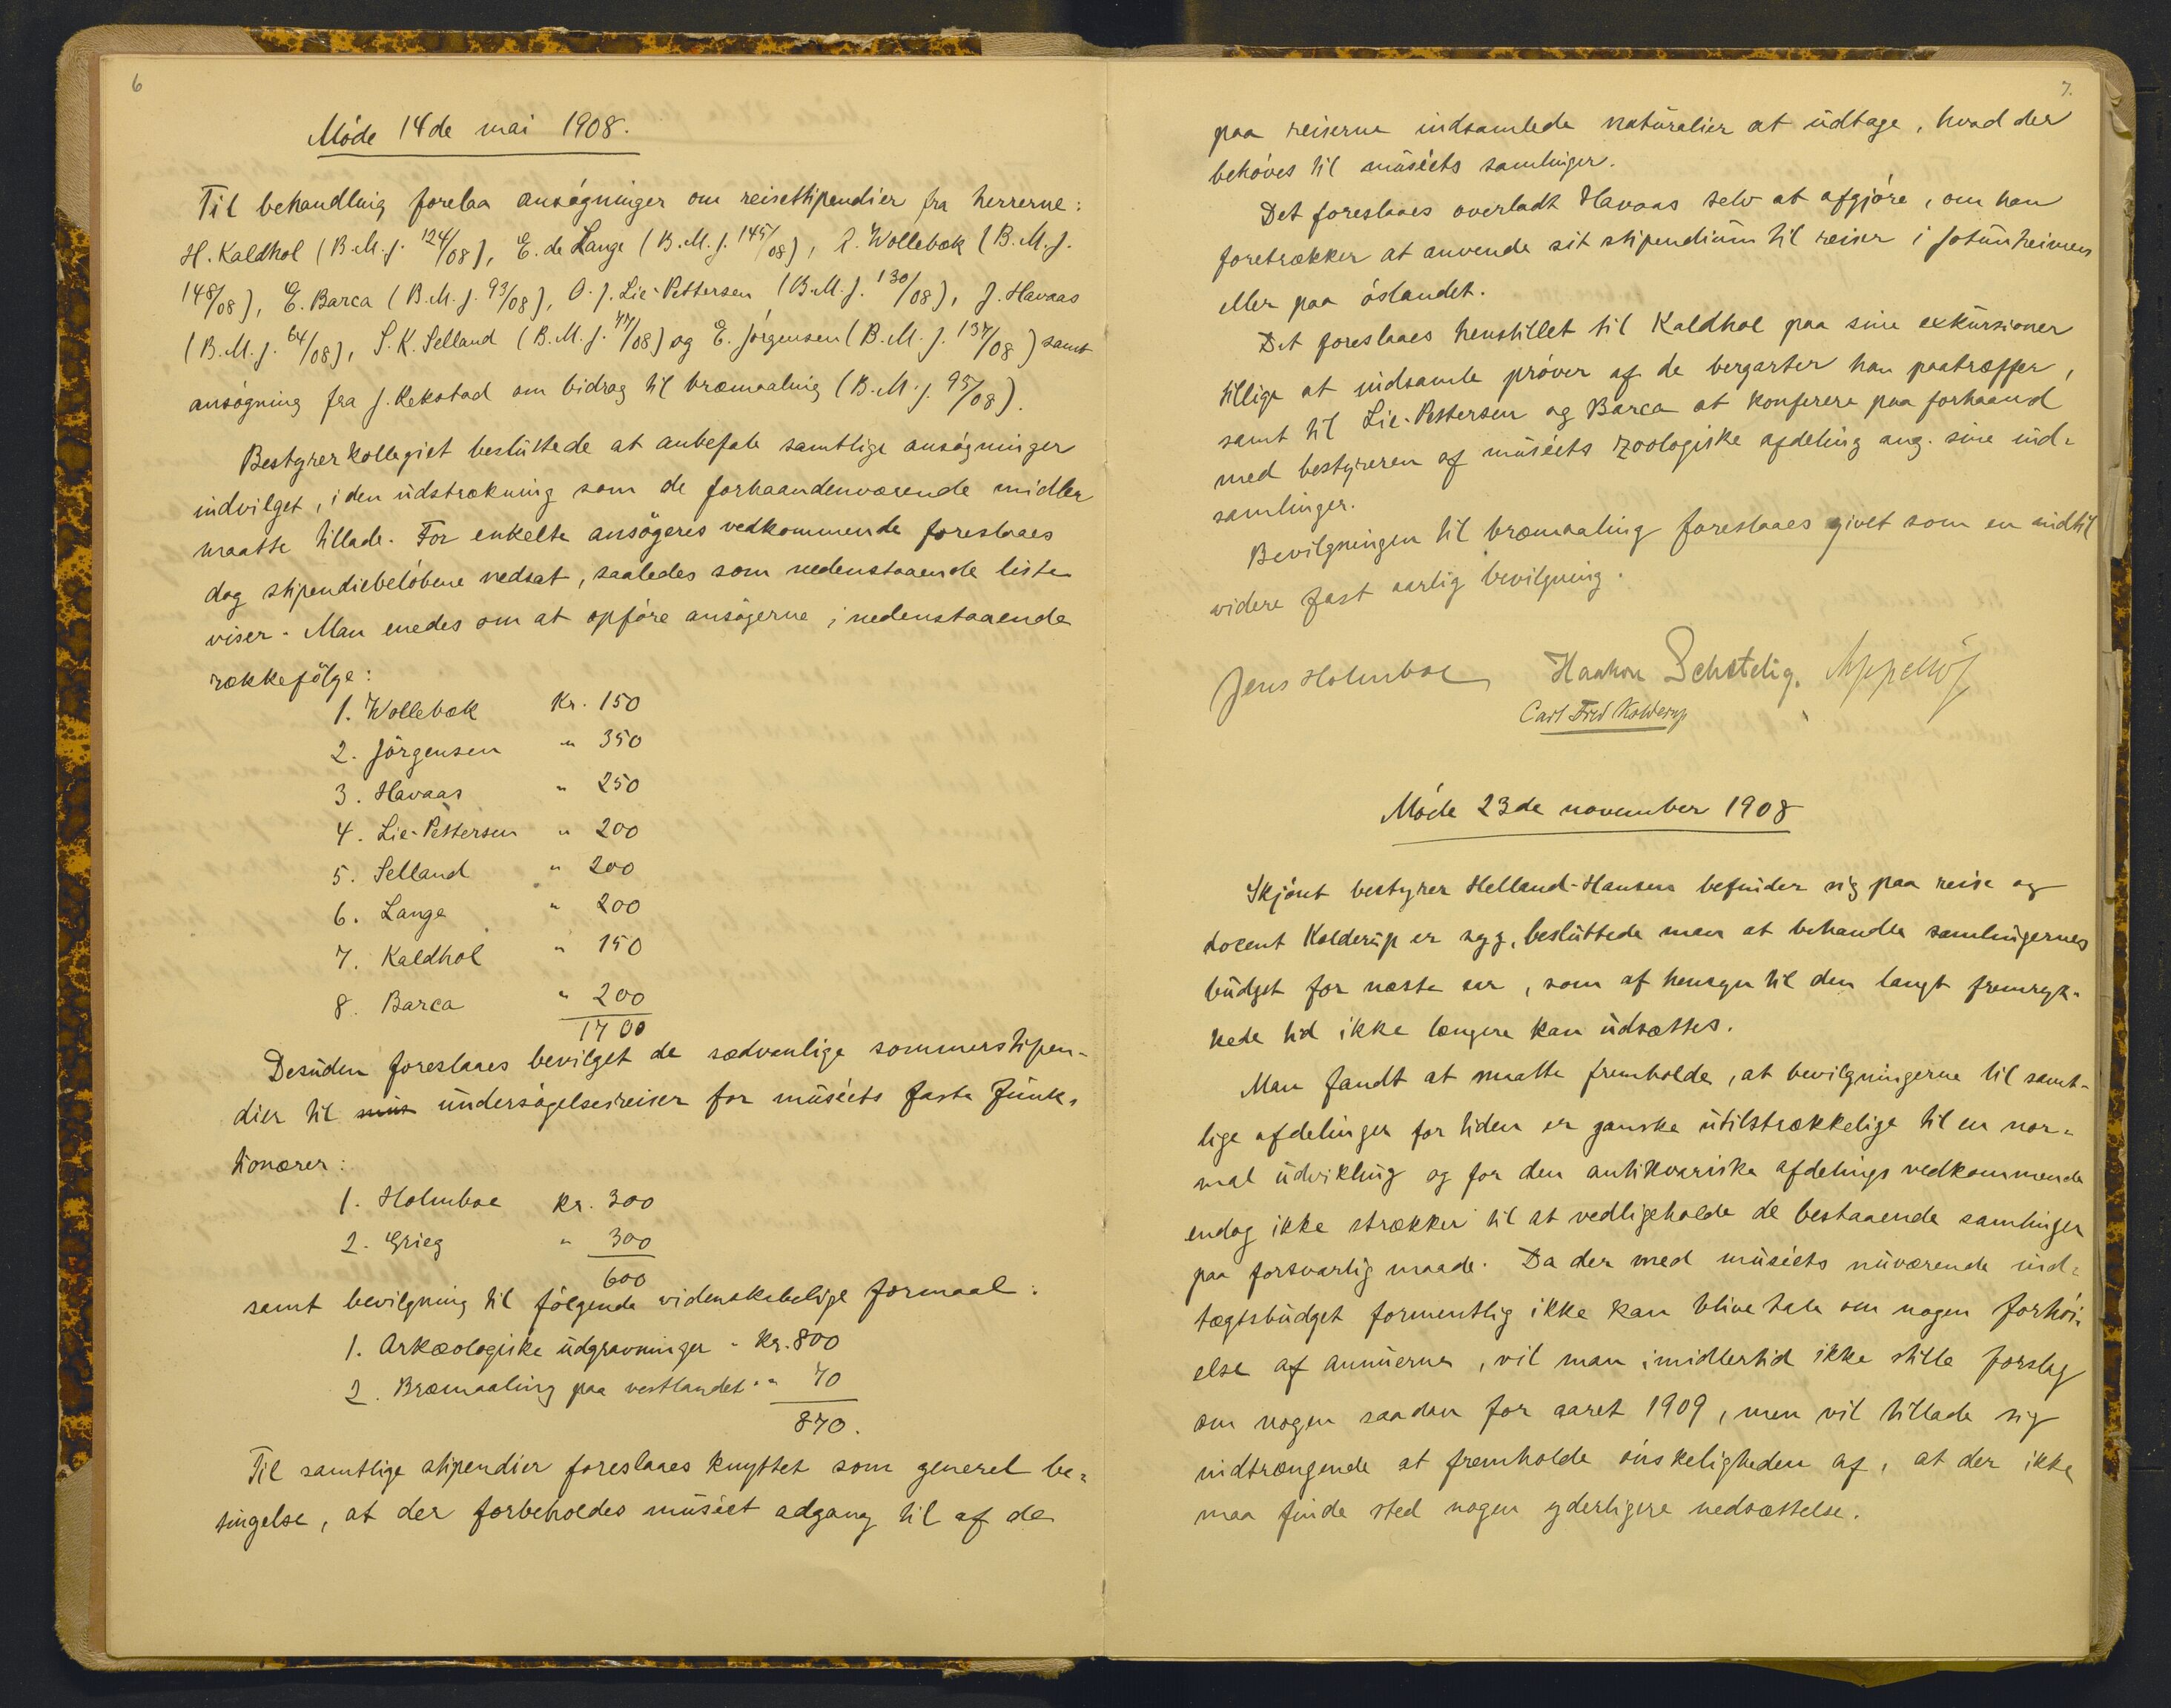 6
Møde 14de mai 1908.
Til behandling forelaa ansøgninger om reisestipendier fra herrerne:
H. Kaldhol (B.M.j. 124/08), E. de Lange (B.M.j. 145/08), A. Wollebæk (B.M.j.
148/08), E. Barca (B.M.j. 93/08), O.J. Lie-Pettersen (B.M.j. 130/08), J. Havaas
(B.M.j. 64/08), S.K. Selland (B.M.j. 77/08) og E. Jørgensen (B.M.j. 137/08) samt
ansøgning fra J. Rekstad om bidrag til bræmaaling (B.M.j. 95/08).
Bestyrerkollegiet besluttede at anbefale samtlige ansøgninger
indvilget, i den udstrækning som de forhaandenværende midler
maatte tillade. For enkelte ansøgeres vedkommende foreslaaes
dog stipendiebeløbene nedsat, saaledes som nedenstaaende liste
viser. Man enedes om at opføre ansøgerne i nedenstaaende
rækkefølge:
1. Wollebæk kr. 150
2. Jørgensen " 350
3. Havaas " 250
4. Lie-Pettersen " 200
5. Selland " 200
6. Lange " 200
7. Kaldhol " 150
8. Barca " 200
1700
Desuden foreslaaes bevilget de sædvanlige sommerstipen-
dier til mus undersøgelsesreiser for muséets faste funk-
tionærer:
1. Holmboe kr. 300
2. Grieg " 300
600
samt bevilgning til følgende videnskabelige formaal:
1. Arkæologiske udgravninger - kr. 800
2. Bræmaaling paa vestlandet - " 70
870.
Til samtlige stipendier foreslaaes knyttet som generel be-
tingelse, at der forbeholdes muséet adgang til af de
7.
paa reiserne indsamlede naturalier at udtage, hvad der
behøves til muséets samlinger.
Det foreslaaes overladt Havaas selv at afgjøre, om han
foretrækker at anvende sit stipendium til reiser i Jotunheimen
eller paa østlandet.
Det foreslaaes henstillet til Kaldhol paa sine exkursioner
tillige at indsamle prøver af de bergarter han paatræffer,
samt til Lie-Pettersen og Barca at konferere paa forhaand
med bestyreren af muséets zoologiske afdeling ang. sine ind-
samlinger.
Bevilgningen til bræmaaling foreslaaes givet som en indtil
videre fast aarlig bevilgning.
Jens Holmboe Haakon Schetelig. Appellöf
Carl Fred Kolderup
Møde 23de november 1908
Skjønt bestyrer Helland-Hansen befinder sig paa reise og
docent Kolderup er syg, besluttede man at behandle samlingernes
budget for næste aar, som af hensyn til den langt fremryk-
kede tid ikke længere kan udsættes.
Man fandt at maatte fremholde, at bevilgningerne til samt-
lige afdelinger for tiden er ganske utilstrækkelige til en nor-
mal udvikling og for den antikvariske afdelings vedkommende
endog ikke strækker til at vedligeholde de bestaaende samlinger
paa forsvarlig maade. Da der med muséets nuværende ind-
tægtsbudget formentlig ikke kan blive tale om nogen forhøi-
else af annuerne, vil man imidlertid ikke stille forslag
om nogen saadan for aaret 1909, men vil tillade sig
indtrængende at fremholde ønskeligheden af, at der ikke
maa finde sted nogen yderligere nedsættelse.